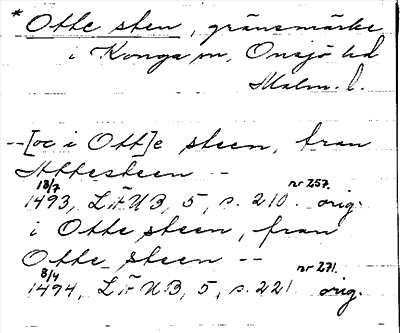 * Otte sten, gränsmärke
i Konga sn, Onsjö hd
Malm. l.
--[oc i Ott]e steen, fran
Attesteen -
18/7 1493, LÄUB, 5, s. 210. nr 257. orig.
i Otte steen, fran
Otte steen --
8/4 1494, LÄUB, 5, s. 221. nr 271. orig.